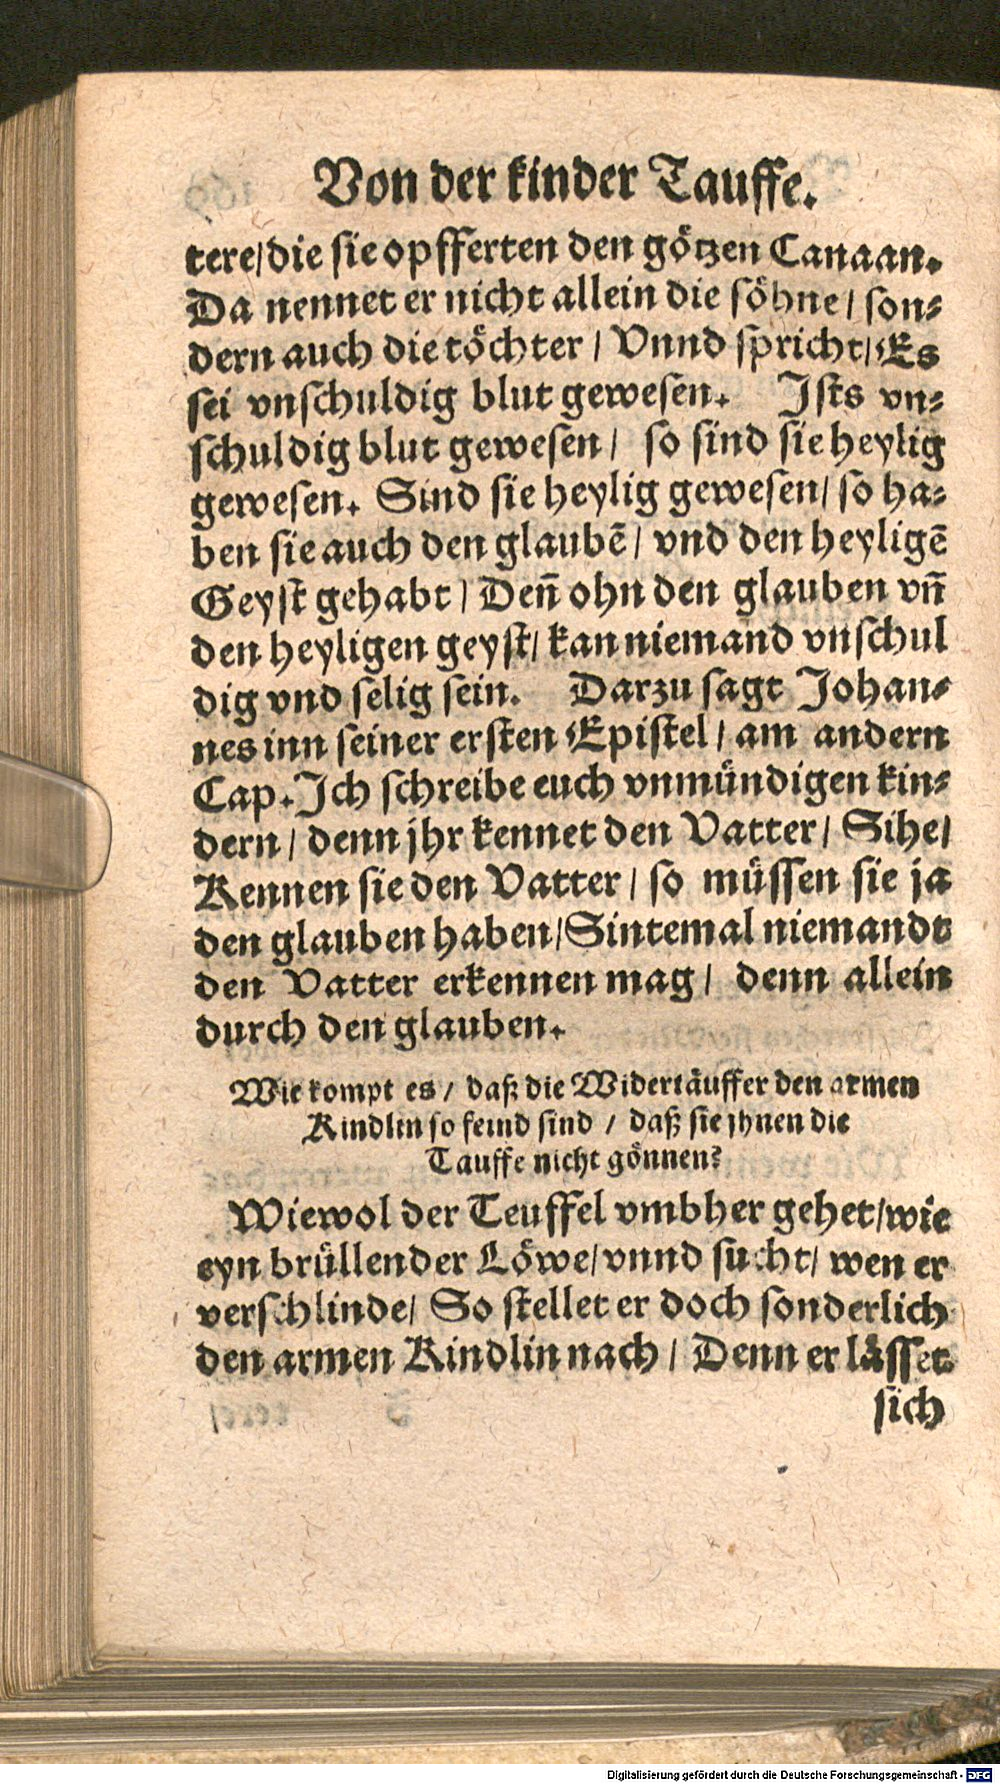 Von der kinder Tauffe.
tere/die sie opfferten den götzen Canaan.
Da nennet er nicht allein die söhne/ son⸗
dern auch die töchter / Vnnd spricht/Es
sei vnschuldig blut gewesen. Ists vn⸗
schuldig blut gewesen/ so sind sie heylig
gewesen. Sind sie heylig gewesen/ so ha⸗
ben sie auch den glaubẽ/ vnd den heyligẽ
Geyst gehabt / Deñ ohn den glauben vñ
den heyligen geyst/ kan niemand vnschul
dig vnd selig sein. Darzu sagt Johan⸗
nes inn seiner ersten Epistel / am andern
Cap. Ich schreibe euch vnmündigen kin⸗
dern / denn jhr kennet den Vatter/ Sihe/
Kennen sie den Vatter / so müssen sie ja
den glauben haben/Sintemal niemandt
den Vatter erkennen mag / denn allein
durch den glauben.
Wie kompt es / daß die Widertäuffer den armen
Kindlin so feind sind / daß sie jhnen die
Tauffe nicht gönnen?
Wiewol der Teuffel vmbher gehet/wie
eyn brüllender Löwe/vnnd sucht/ wen er
verschlinde/ So stellet er doch sonderlich
den armen Kindlin nach / Denn er lässet
sich
Digitalisierung gefördert durch die Deutsche Forschungsgemeinschaft - DFG